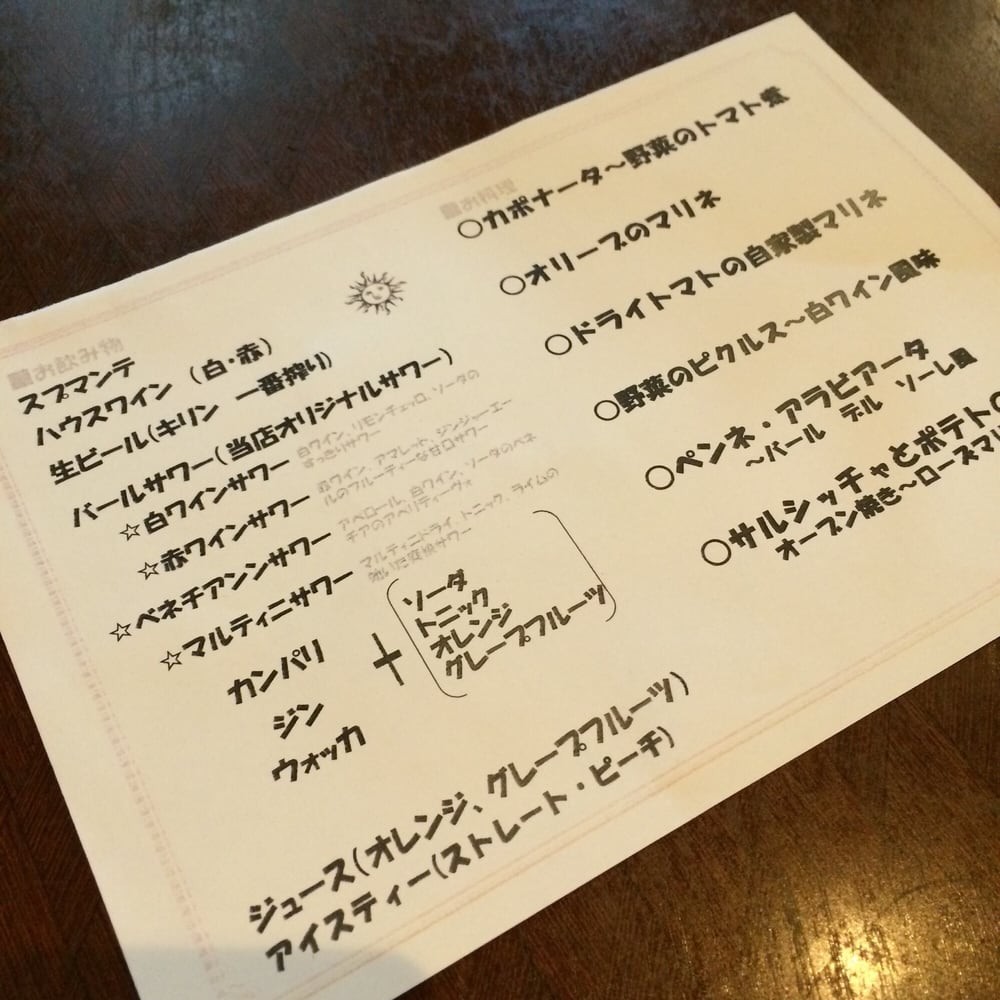 ■お飲み物
スプマンテ
ハウスワイン （白・赤）
生ビール(キリン 一番搾り)
バールサワー(当店オリジナルサワー)
☆白ワインサワー 白ワイン、リモンチェッロ、ソーダの
すっきりサワー
☆赤ワインサワー 赤ワイン、アマレット、ジンジャーエー
ルのフルーティーな甘口サワー
☆ベネチアンンサワー アペロール、白ワイン、ソーダのベネ
チアのアペリティーヴォ
☆マルティニサワー マルティニドライ、トニック、ライムの
効いた爽快サワー
カンパリ
ジン
ウォッカ
+
ソーダ
トニック
オレンジ
グレープフルーツ
ジュース(オレンジ、グレープフルーツ)
アイスティー(ストレート・ピーチ)
■お料理
○カポナータ～野菜のトマト煮
○オリーブのマリネ
○ドライトマトの自家製マリネ
○野菜のピクルス～白ワイン風味
○ペンネ・アラビアータ
～バール デル ソーレ風
○サルシッチャとポテトの
オーブン焼き～ローズマリ